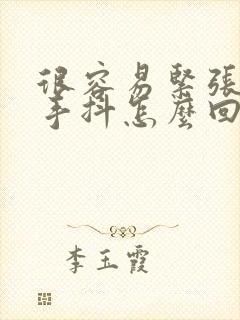 很容易緊張
手抖怎麼回
李玉霞